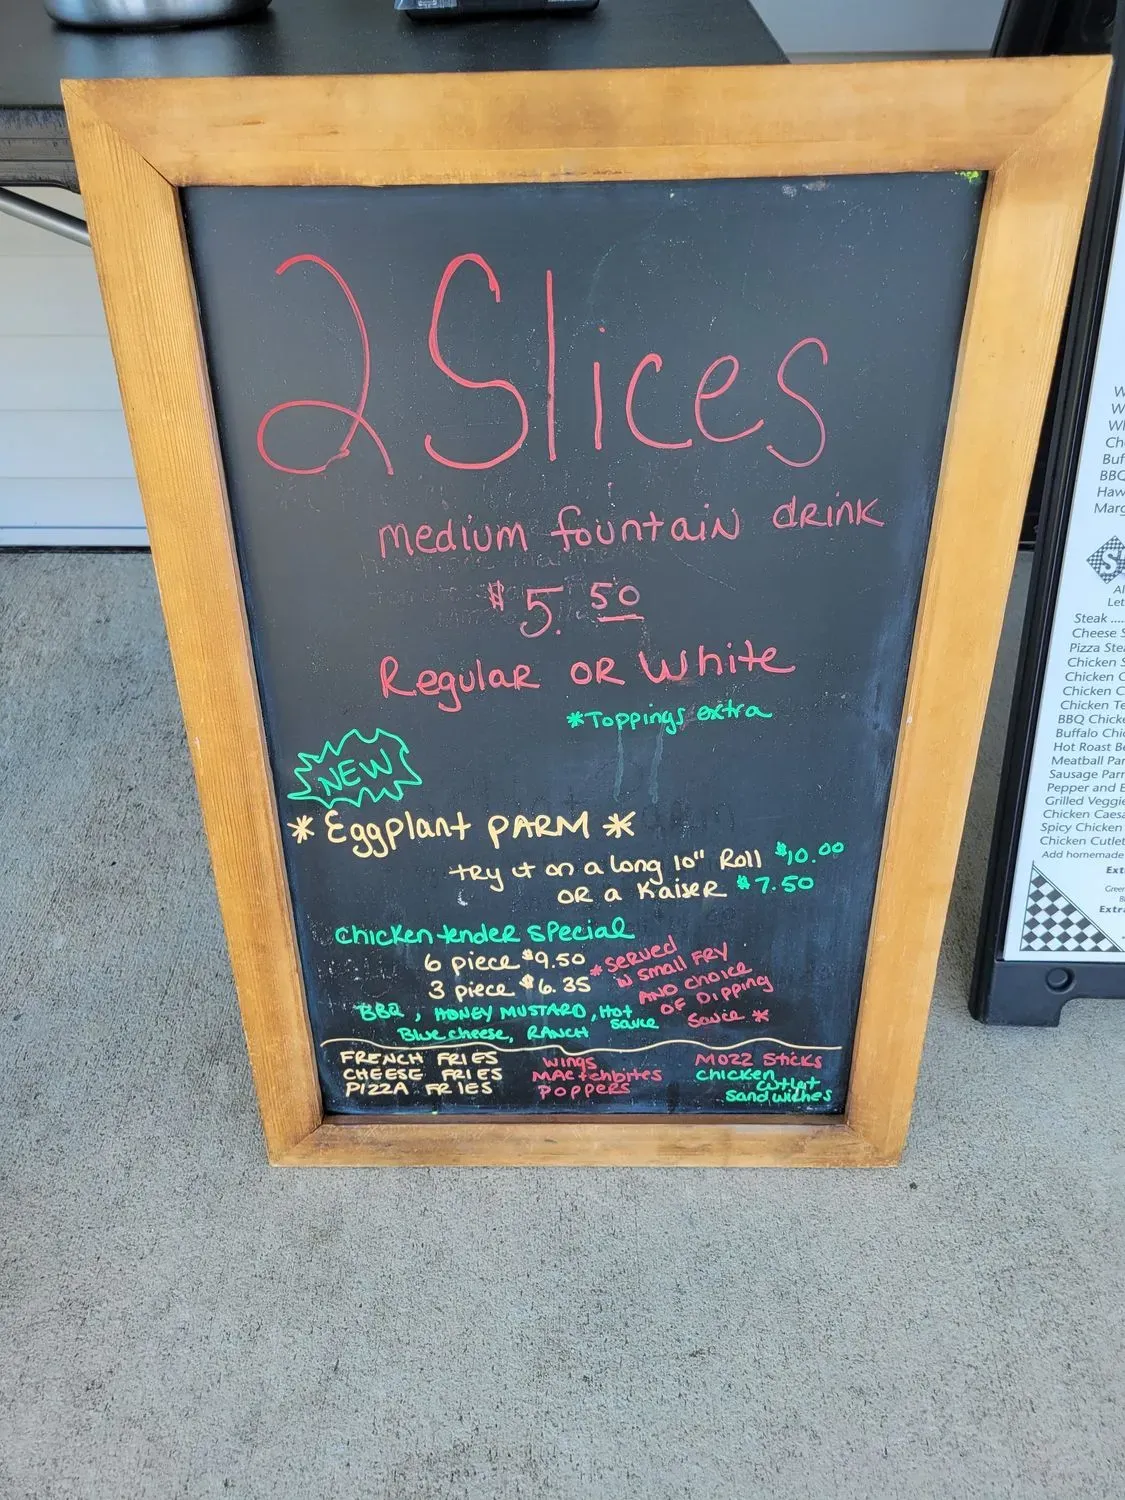 2 Slices
medium fountain drink
$5.50
Regular OR White
*Toppings extra
NEW
* Eggplant PARM *
try it on a long 10" Roll $10.00
OR a Kaiser $7.50
Chicken tender special
6 piece $9.50
3 piece $6.35
*SERVED
w small FRY
AND choice
OF Dipping
Sauce *
BBQ, HONEY MUSTARD, Hot
sauce
Blue cheese, RANCH
FRENCH FRIES
CHEESE FRIES
PIZZA FRIES
wings
MAC + ch bites
POPPERS
MOZZ Sticks
chicken
cutlet
sandwiches
Steak ....
Cheese S
Pizza Ste
Chicken S
Chicken C
Chicken C
Chicken Te
BBQ Chicke
Buffalo Chic
Hot Roast Be
Meatball Par
Sausage Parm
Pepper and E
Grilled Veggie
Chicken Caesa
Spicy Chicken
Chicken Cutlet
Add homemade